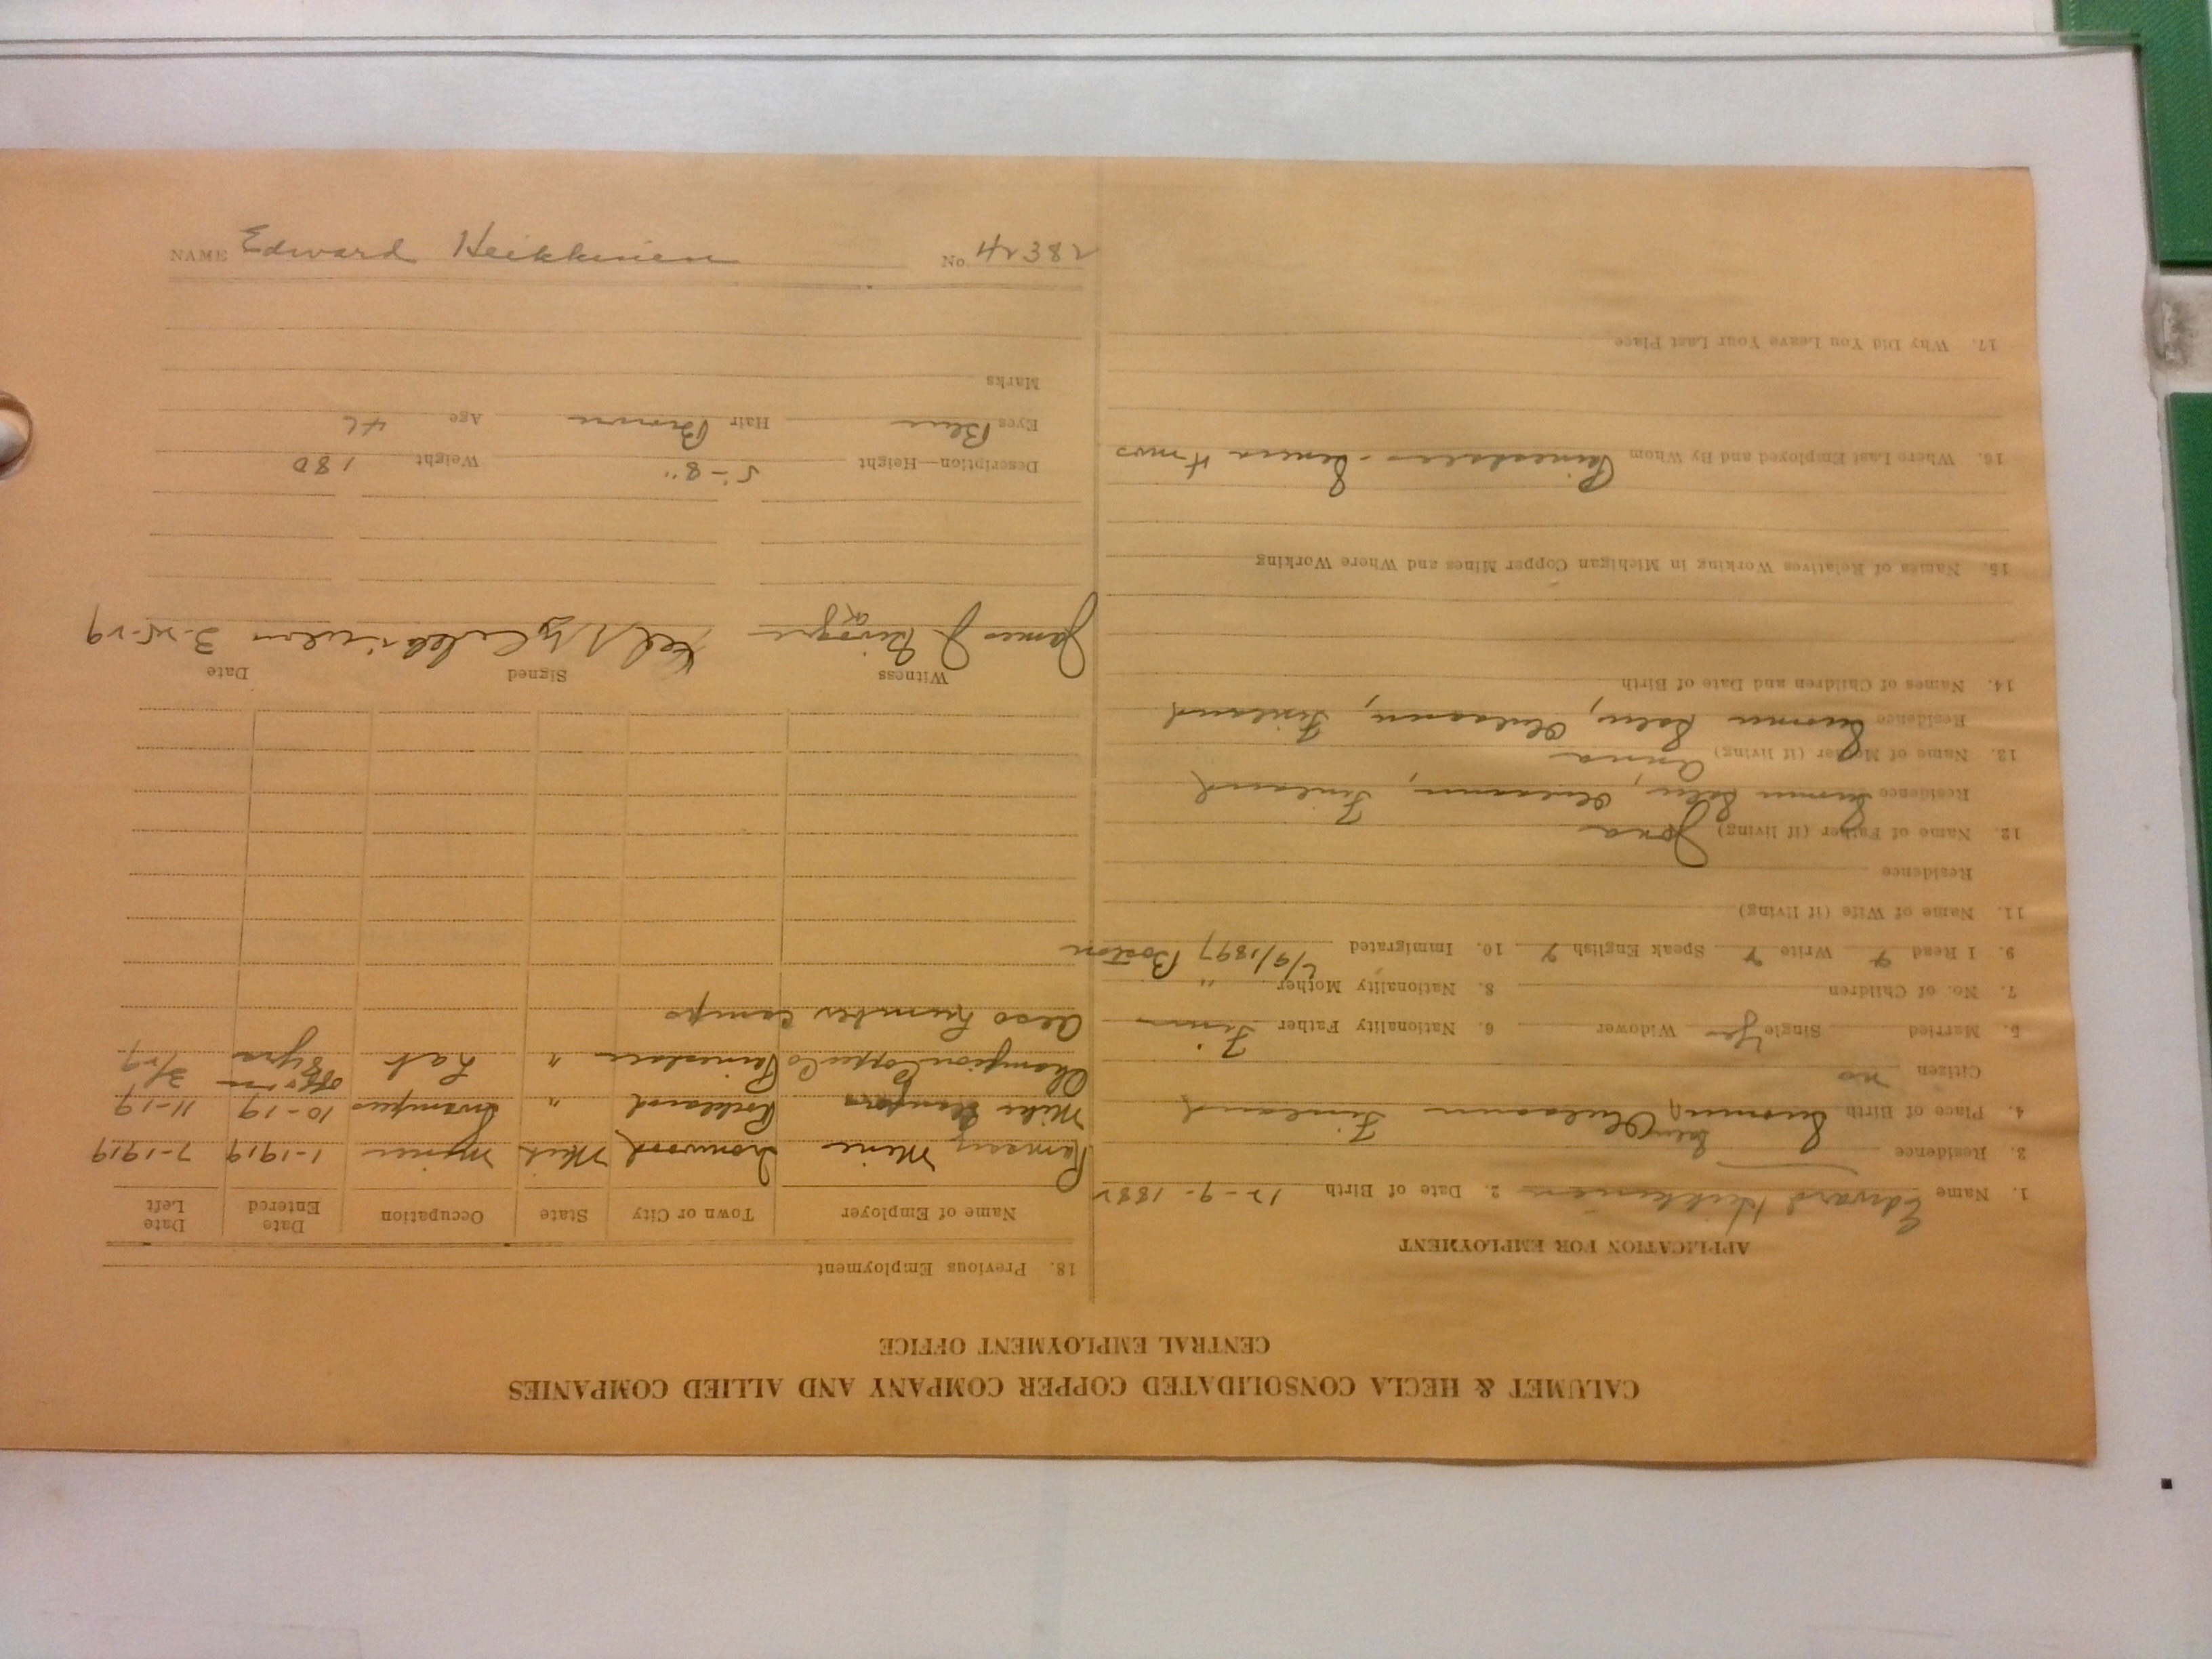 CALUMET & HECLA CONSOLIDATED COPPER COMPANY AND ALLIED COMPANIES
CENTRAL EMPLOYMENT OFFICE
APPLICATION FOR EMPLOYMENT
1. Name Edward Heikkinen 2. Date of Birth 12-9-1882
3. Residence
4. Place of Birth Finland
Citizen no
5. Married Single Yes Widower 6. Nationality Father Finn
7. No. of Children 8. Nationality Mother "
9. I Read Y Write Y Speak English Y 10. Immigrated /9/1897 Boston
11. Name of Wife (if living)
Residence
12. Name of Father (if living)
Residence Finland
13. Name of Mother (if living) Anna
Residence Finland
14. Names of Children and Date of Birth
15. Names of Relatives Working in Michigan Copper Mines and Where Working
16. Where Last Employed and By Whom Painesdale - Seneca 4 mos
17. Why Did You Leave Your Last Place
18. Previous Employment
Name of Employer Town or City State Occupation Date Entered Date Left
Ramsey Mine Ironwood Mich Miner 1-1919 7-1919
Mike Rockland " 10-19 11-19
Champion Copper Co Painesdale " Lab off & on 8 yrs 3/29
Also Lumber Camps
Witness Signed Date
James J. 3-25-29
Description—Height 5'-8" Weight 180
Eyes Blue Hair Brown Age 46
Marks
NAME Edward Heikkinen No. 42382